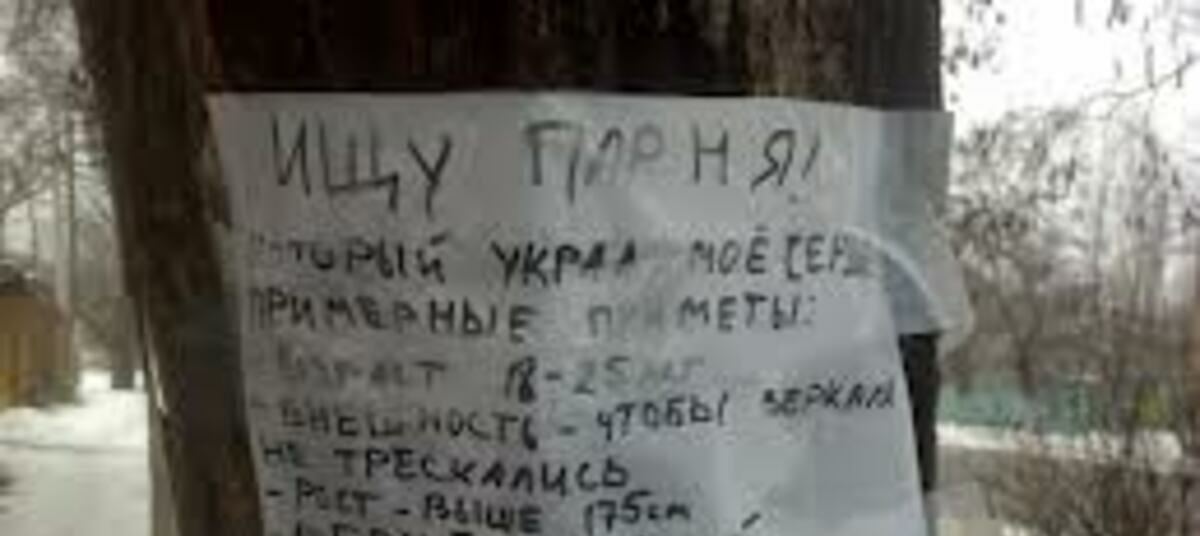 ИЩУ ПАРНЯ!
КОТОРЫЙ УКРАЛ МОЁ СЕРДЦЕ
ПРИМЕРНЫЕ ПРИМЕТЫ:
ВОЗРАСТ 18-25 лет
- ВНЕШНОСТЬ - ЧТОБЫ ЗЕРКАЛА
НЕ ТРЕСКАЛИСЬ
- РОСТ - ВЫШЕ 175см